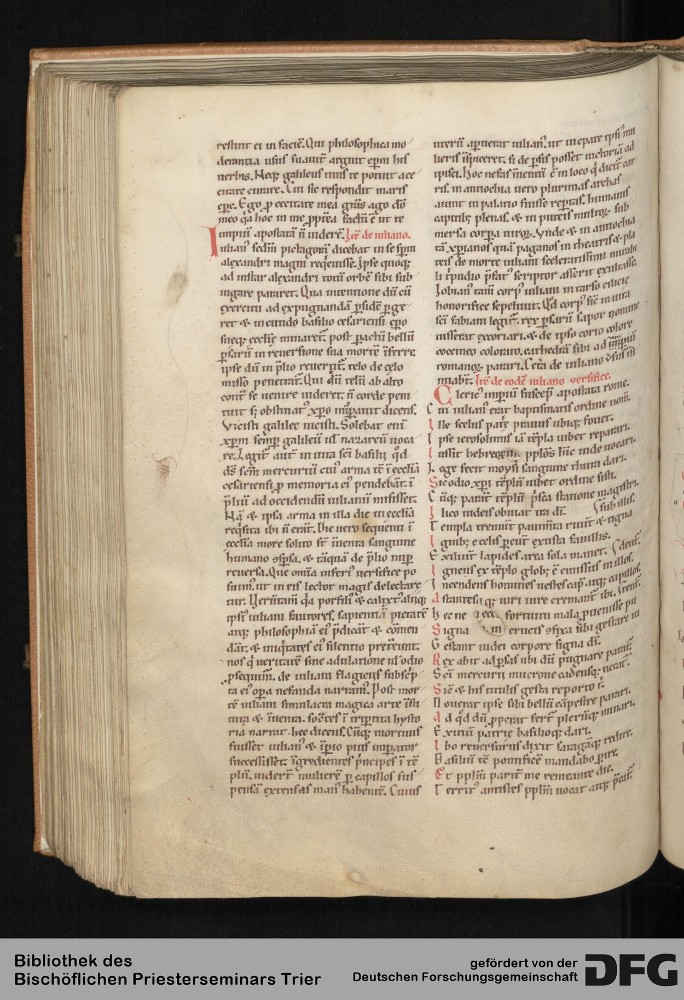 restitit ei in faciē. Qui philosophica mo
derantia usus suauit̄ arguit ep̄m his
uerbis. Neq; galileus tuus te potuit oce
citate curare. Cui sic respondit maris
ep̄c. Ego ꝓ cecitate mea grās ago dō
meo q̄a hoc in me ꝓp̄t̄ea factū ē ut te
impiū apostatā n̄ uiderē. Itē de iuliano.
Iulian' sc̄dm pictagorā dicebat in se sp̄m
alexandri magni req̄euisse. Ipse quoq;
ad instar alexandri totū orbē sibi sub
iugare pararet. Qua intentione dū cū
exercitu ad expugnandā p̄sidē p̄ge
ret & in eundo basilio cesariensi ep̄o
sueq; ecclīę minaret. post pactū bellū
p̄sarū in reuersione sua mortē
ipse dū in p̄lio reuertit̄. telo de celo
misso penetrat̄. Qui dū telū ab alto
tuit s; obstinat' xp̄o dicens.
Vicisti galilee uicisti. Solebat eni
xp̄m semp̄ galileū ul nazareū uoca
re. Legit̄ aut̄ in uita sc̄i basilii q̄d
dn̄s sc̄m mercuriū cui' arma
cesariensi ꝓ memoria ei' pendebāt
p̄liū ad occidendū iulianū misisset.
Nā & ipsa arma in illa die in eccl̄ia
req̄sita ibi n̄ erāt. Die uero sequenti ī
eccl̄ia more solito st̄ īuenta sanguine
humano & tāquā de p̄lio nup̄
reuersa. Que om̄ia inferi' uersifice po
suim', ut in eis lector magis delectare
tur. Verūtam̄ q̄a porfili' & calixt'
ipsi' iuliani fautores, sapientiā pietatē
atq; philosophiā ei' p̄dicāt & cōmen
dāt. & iniq̄tates ei' silentio p̄tereunt.
nos q̄ ueritatē sine adulatione ul odio
ꝓsequim̄. de iuliani flagiciis
ta ei' op̄a nefanda narram'. Post mor
tē iuliani simulacra magica arte
tuta & īuenta. ī tript̄ita hysto
ria narrat hec dicens. Cūq; mortuus
fuisset iulian' & īp̄io pius imp̄ator
successisset. īgredientes p̄ncipes ī tē
plū. uidert̄ mulierē ꝑ capillos sus
pensā extensas man' habentē. Cuius
uterū ap̄uerat iulian', ut in epate ipsi' mu
lieris īspiceret. si de p̄sis posset uictoriā ad
ipisci. Hoc nefas īuentū ē in loco q̄ dicit̄ car
ris. in antiochia uero plurimas archas
aiunt in palatio fuisse rep̄tas, humanis
capitib; plenas. & in puteis multaq; sub
mersa corp̄a Vnde & in antiochia
tā xp̄ianos quā paganos in theatris & pla
teis de morte iuliani sceleratissimi mirabi
li tripudio p̄fat' scriptor asserit exultasse.
Iobian' tam̄ corp' iuliani in tarso cilicie
honorifice sepeliuit. Q̄d corp' sic̄ in uita
sc̄i fabiani legit̄. rex p̄sarū sapor nomine
iusserat excoriari. & de ipso corio colore
coccineo colorato. cathedrā sibi
romanoq; parari. Cet̄a de iuliano
mirabit̄. Itē de eodē iuliano uersifice.
Cleric' impiū suscep̄ apostata rome.
Cui iulian' erat baptismatis ordine nom̄.
Ille scelus pat̄ prauus ubiq; fouet.
Ipse ierosolimis iā tēpla iubet reparari.
Iussit hebreoꝝ ppl̄os hīc inde uocari.
Lege fecit moysi sanguine thura dari.
Sic odio xp̄i tēplū iubet ordine sisti.
Cūq; parāt tēplū p̄sca statione magistri.
Ilico iudeis obuiat ira di.
Templa tremūt pauimta ruūt & tigna sub illis.
Ignib; e celis p̄eūt exusta fauillis.
Exiliūt lapides area sola manet.
Igneus ex tēplo glob; ē emissus in illos.
Incendens homines uestes cap' atq; capillos.
Astantesq; uiri iure cremant̄ ibi.
Hec ne fortuitu mala puenisse pu
Signa crucis sibi gestare ui
Gestant iudei corpore signa di.
Rex abit ad p̄sas ubi dū pugnare parat̄.
Sc̄i mercurii mucrone cadensq; necat̄.
Sic̄ & his titulis gesta reporto
Nouerat ipse sibi bellū cāpestre parari.
Ad q̄d dū ꝓperat fert̄ plerūq; minari.
Exitiū patrie basilioq; dari.
Ibo reuersurus dixit satagāq; redire.
Basiliū te pontificē mandabo
Et pplm̄ parit̄ me remeante die.
Territ' antistes pplm̄ uocat atq;
Bibliothek des
Bischöflichen Priesterseminars Trier
gefördert von der
Deutschen Forschungsgemeinschaft
DFG